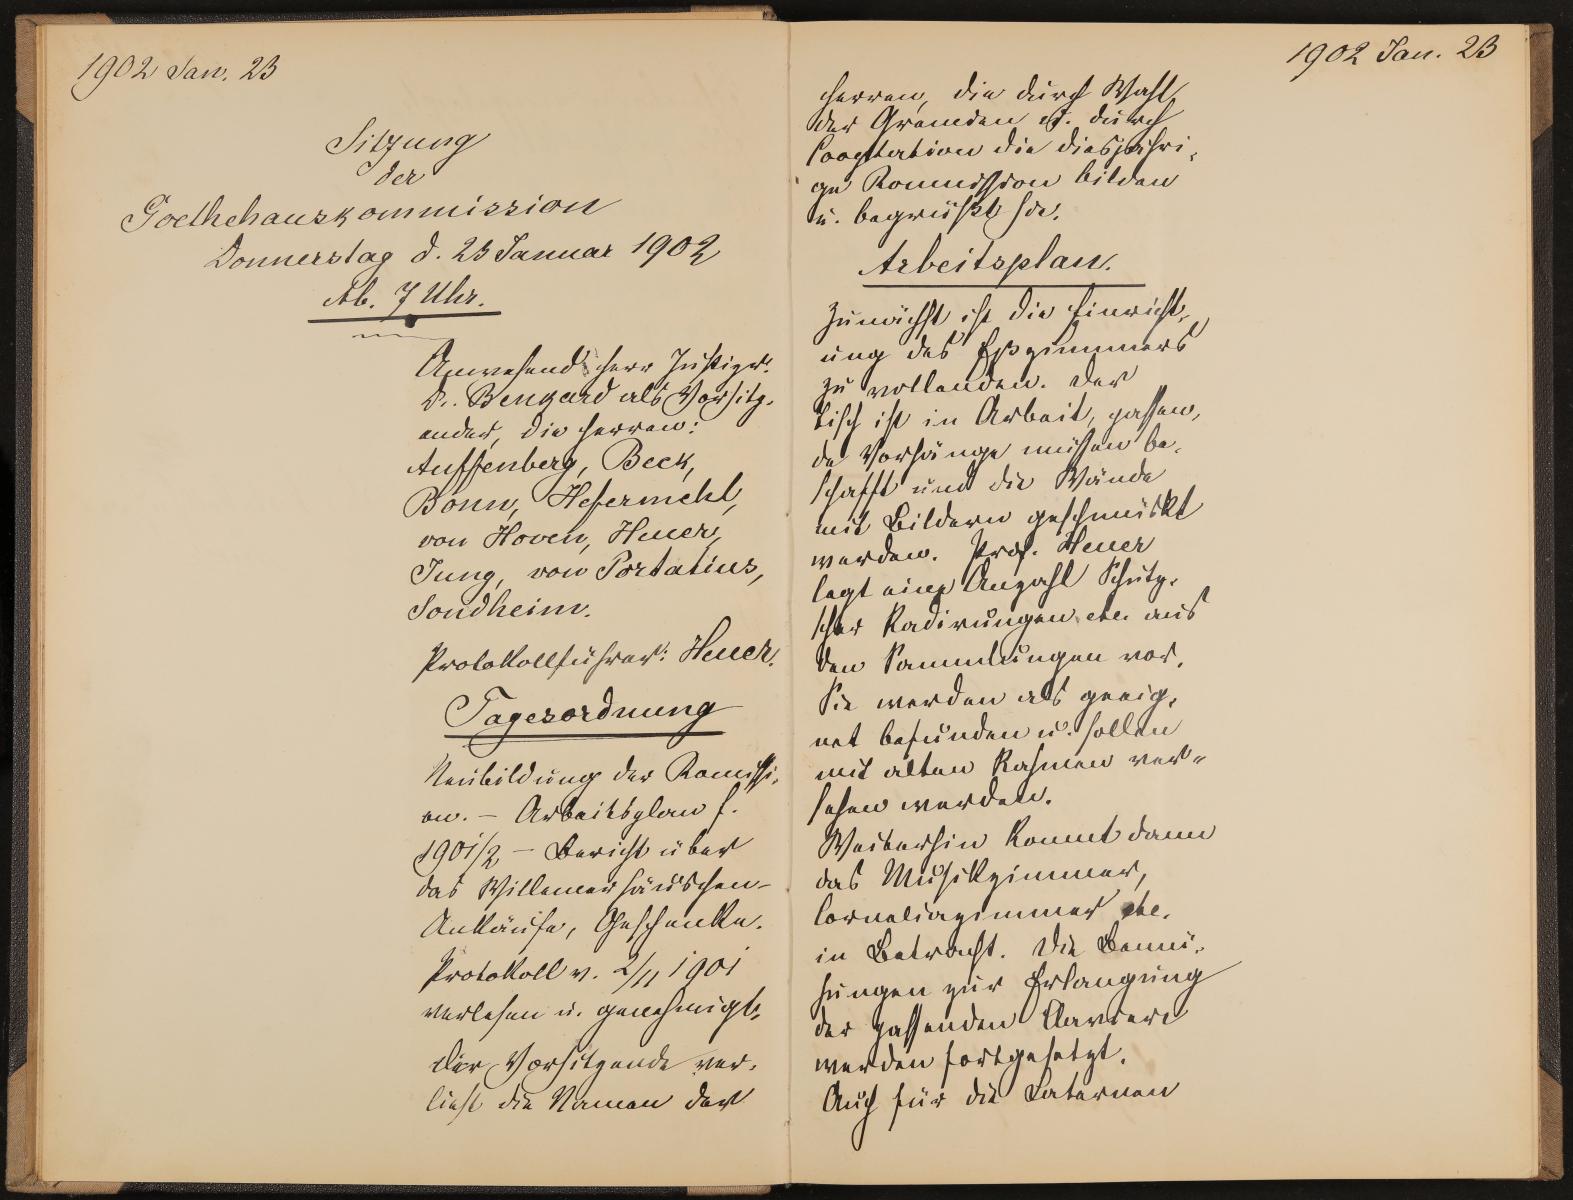 1902 Jan. 23
Sitzung
der
Goethehauskommission
Donnerstag d. 23 Januar 1902
Ab. 7 Uhr.
Anwesend: Herr Justizr.
Dr. Benkard als Vorsitz-
ender, die Herren:
Auffenberg, Beck,
Bonn, Hefermehl,
von Hoven, Heuer,
Jung, von Portatius,
Sondheim.
Protokollführer: Heuer.
Tagesordnung
Neubildung der Komissi-
on. – Arbeitsplan f.
1901/2 – Bericht über
das Willemerhäuschen –
Ankäufe, Geschenke.
Protokoll v. 2/11 1901
verlesen u. genehmigt.
Der Vorsitzende ver-
liest die Namen der
1902 Jan. 23
Herren, die durch Wahl
der Gremien u. durch
Cooptation die diesjähri-
ge Kommission bilden
u. begrüßt sie.
Arbeitsplan.
Zunächst ist die Einricht-
ung des Eßzimmers
zu vollenden. Der
Tisch ist in Arbeit, passen-
de Vorhänge müssen be-
schafft und die Wände
mit Bildern geschmückt
werden. Prof. Heuer
legt eine Anzahl Schütz-
scher Radirungen etc. aus
den Sammlungen vor.
Sie werden als geeig-
net befunden u. sollen
mit alten Rahmen ver-
sehen werden.
Weiterhin kommt dann
das Musikzimmer,
Corneliazimmer etc.
in Betracht. Die Bemü-
hungen zur Erlangung
der passenden Claviere
werden fortgesetzt.
Auch für die Laternen